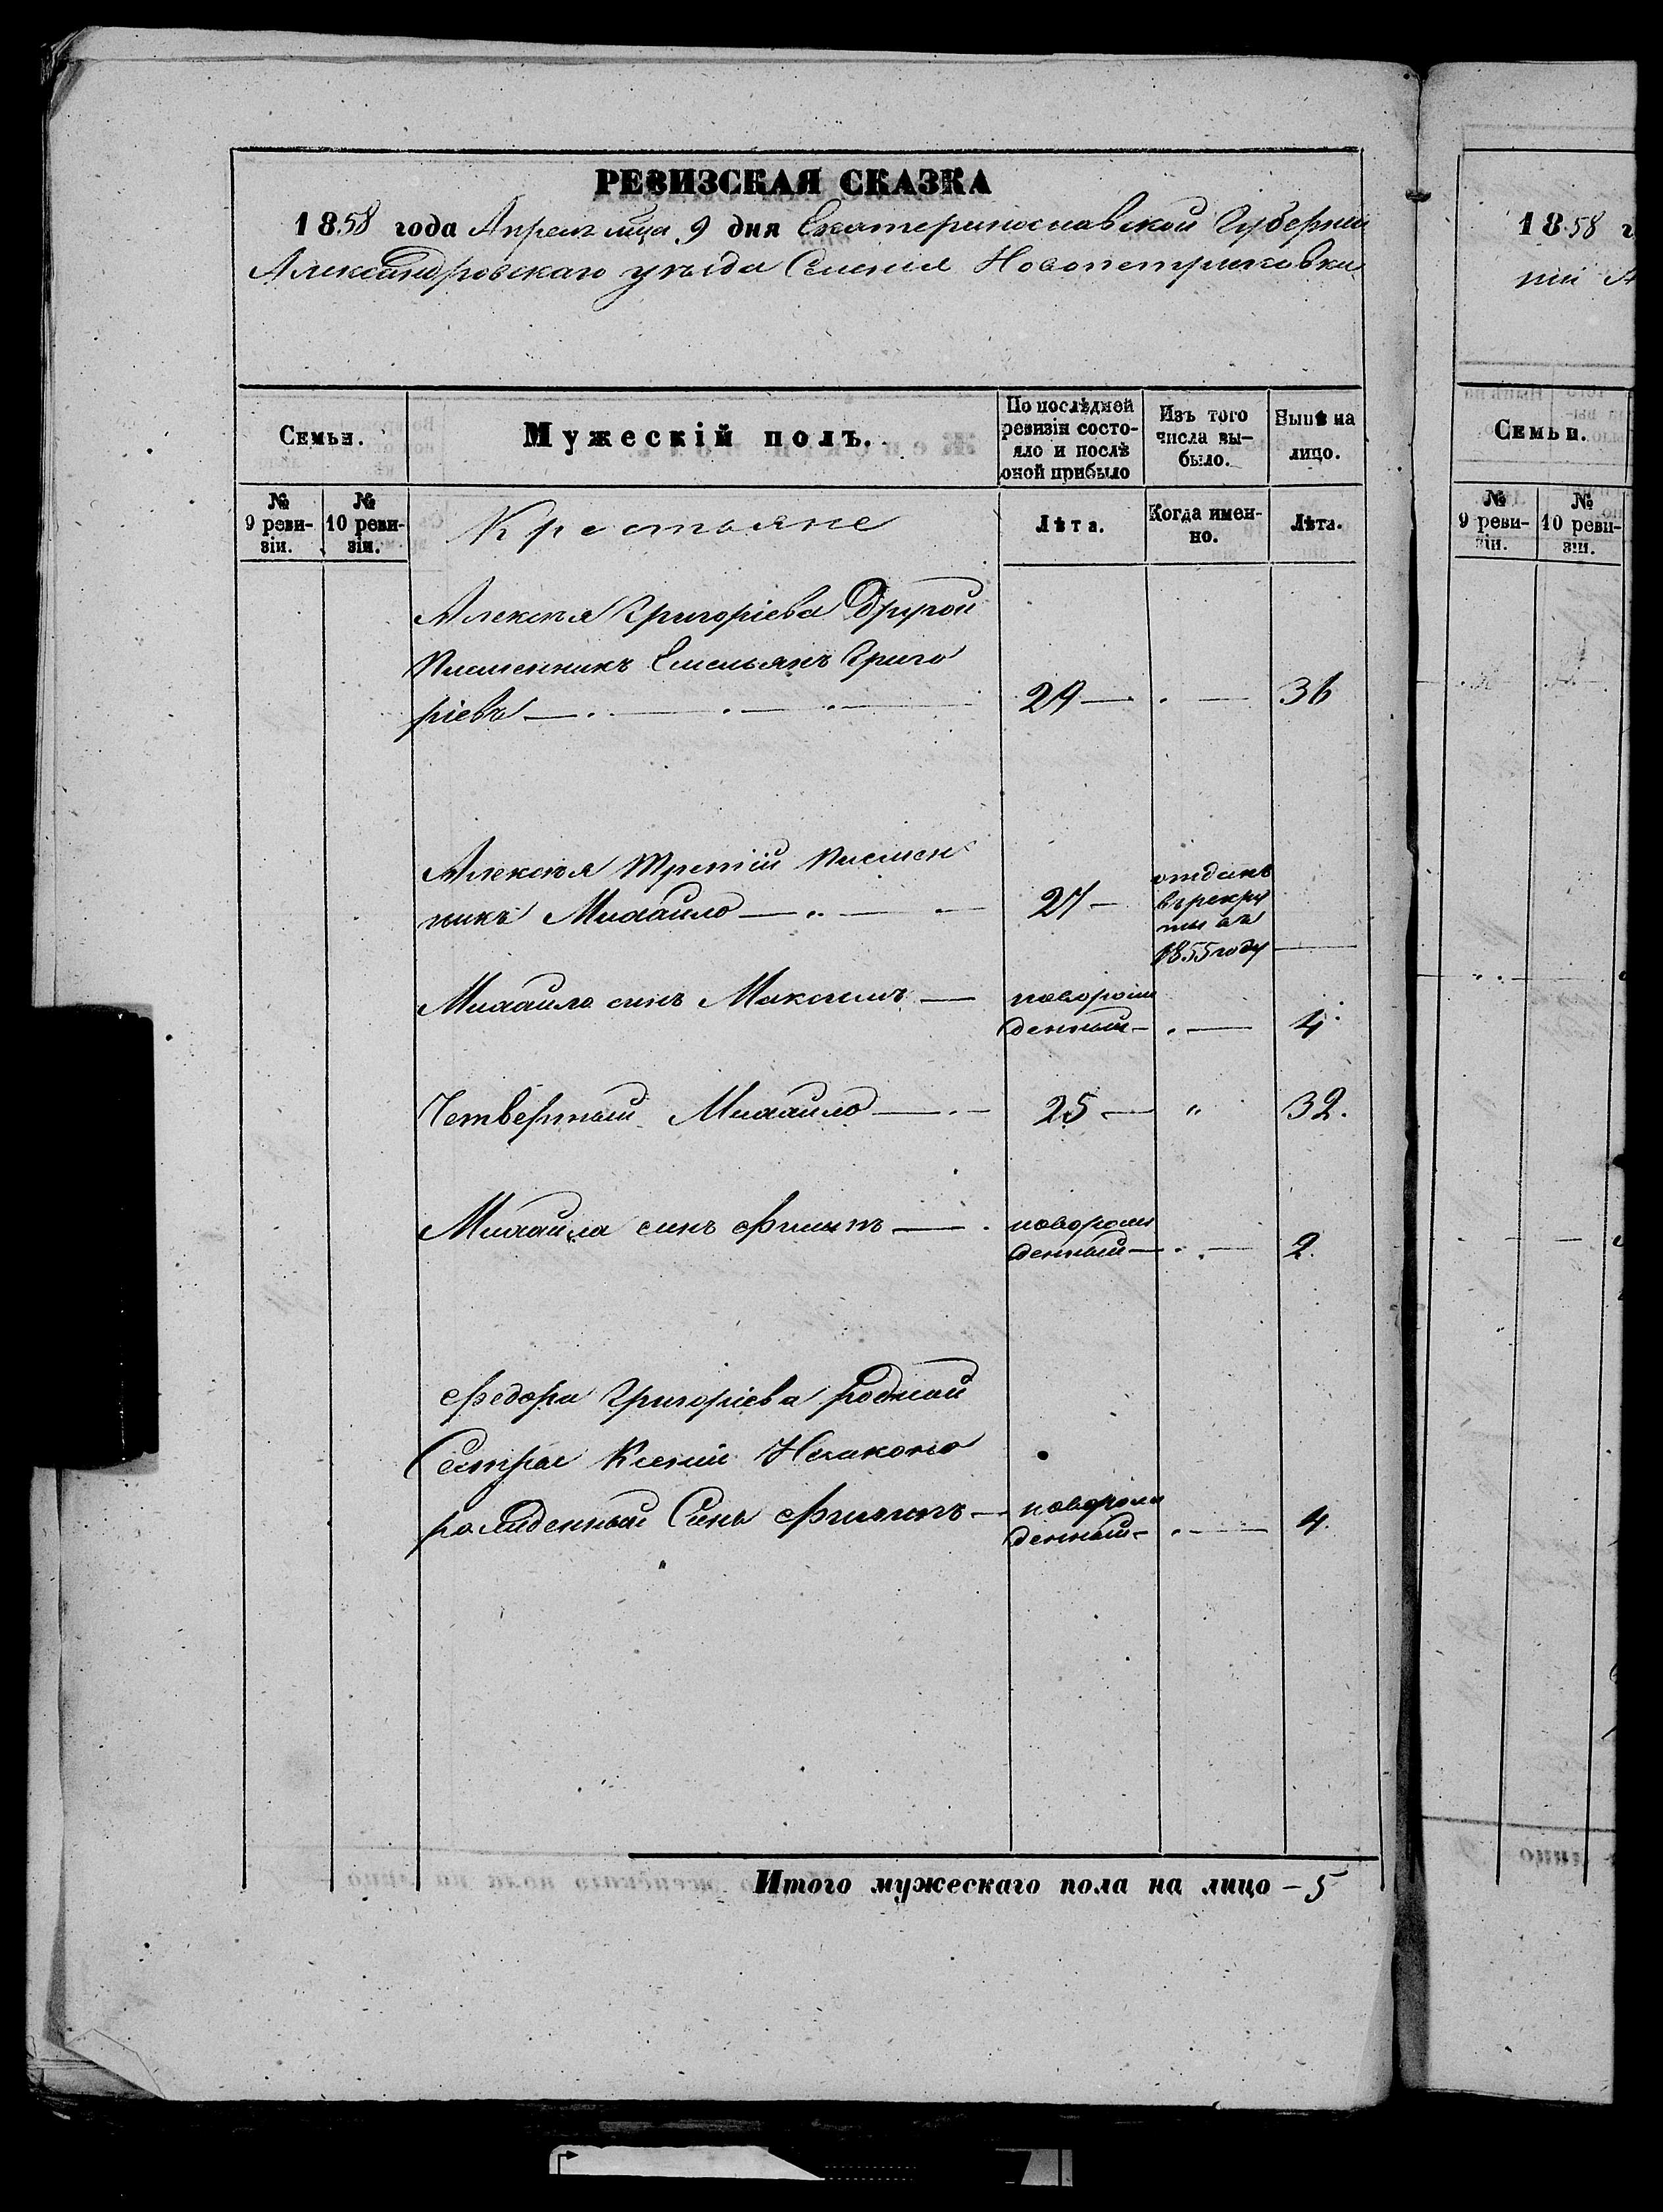 РЕВИЗСКАЯ СКАЗКА
1858 года Апреля мца 9 дня Екатеринославской Губернии
Александровскаго уезда Селения Новопетриковки
Семьи.
Мужескій полъ.
По послѣдней ревизіи состояло и послѣ оной прибыло
Изъ того числа выбыло.
Нынѣ на лицо.
№ 9 ревизіи.
№ 10 ревизіи.
Крестьяне
Лѣта.
Когда именно.
Лѣта.
Алексѣя Григоріева Другой
Племенникъ Емельянъ Григо
ріевъ — 29 — 36
Алексѣя Третій Племен
никъ Михайло — 27 —
отданъ
въ рекру
ты въ
1855 году
Михайла сынъ Максимъ — новорож
денный — 4
Четвертый Михайло — 25 — " 32.
Михайла сынъ Филипъ — новорож
денный — 2.
Федора Григоріева родной
Сестры Ксеніи Незаконо
рожденный Сынъ Филипъ — новорож
денный — 4.
Итого мужескаго пола на лицо – 5
1858 г
Семьи.
№ 9 ревизіи.
№ 10 ревизіи.